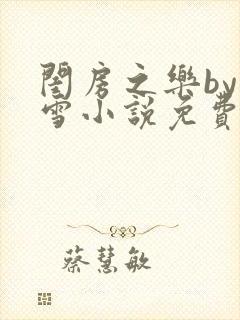 閨房之樂by
雪小說免費
蔡慧敏